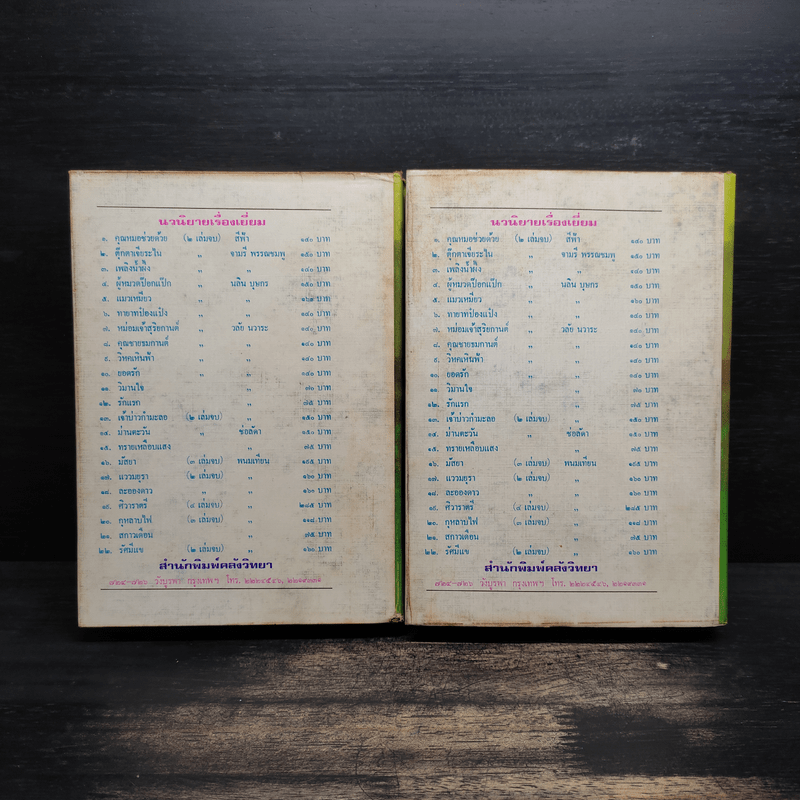 นวนิยายเรื่องเยี่ยม
๑. คุณหมอช่วยด้วย (๒ เล่มจบ) สีฟ้า ๑๔๐ บาท
๒. ตุ๊กตาเจียระไน " จามรี พรรณชมพู ๑๕๐ บาท
๓. เพลิงน้ำผึ้ง " " ๑๕๐ บาท
๔. ผู้หมวดป๊อกแป๊ก " นลิน บุษกร ๑๔๐ บาท
๕. แมวเหมียว " " ๑๖๐ บาท
๖. ทายาทป๋องแป๋ง " " ๑๔๐ บาท
๗. หม่อมเจ้าสุริยกานต์ " วลัย นวาระ ๑๔๐ บาท
๘. คุณชายชมกานต์ " " ๑๔๐ บาท
๙. วิหคเหินฟ้า " " ๑๔๐ บาท
๑๐. ยอดรัก " " ๑๔๐ บาท
๑๑. วิมานใจ " ๗๐ บาท
๑๒. รักแรก " ๗๕ บาท
๑๓. เจ้าบ่าวกำมะลอ (๒ เล่มจบ) " ๑๕๐ บาท
๑๔. ม่านตะวัน " ช่อลัดา ๑๕๐ บาท
๑๕. ทรายเหลือบแสง " ๗๕ บาท
๑๖. มัสยา (๓ เล่มจบ) พนมเทียน ๑๙๕ บาท
๑๗. แววมยุรา (๒ เล่มจบ) " ๑๖๐ บาท
๑๘. ละอองดาว " " ๑๖๐ บาท
๑๙. ศิวาราตรี (๔ เล่มจบ) " ๒๘๕ บาท
๒๐. กุหลาบไฟ (๓ เล่มจบ) " ๑๑๘ บาท
๒๑. สกาวเดือน " ๗๕ บาท
๒๒. รัศมีแข (๒ เล่มจบ) " ๑๖๐ บาท
สำนักพิมพ์คลังวิทยา
๗๒๔-๗๒๖ วังบูรพา กรุงเทพฯ โทร. ๒๒๒๔๕๔๖, ๒๒๑๙๓๓๑
นวนิยายเรื่องเยี่ยม
๑. คุณหมอช่วยด้วย (๒ เล่มจบ) สีฟ้า ๑๔๐ บาท
๒. ตุ๊กตาเจียระไน " จามรี พรรณชมพู ๑๕๐ บาท
๓. เพลิงน้ำผึ้ง " " ๑๕๐ บาท
๔. ผู้หมวดป๊อกแป๊ก " นลิน บุษกร ๑๔๐ บาท
๕. แมวเหมียว " " ๑๖๐ บาท
๖. ทายาทป๋องแป๋ง " " ๑๔๐ บาท
๗. หม่อมเจ้าสุริยกานต์ " วลัย นวาระ ๑๔๐ บาท
๘. คุณชายชมกานต์ " " ๑๔๐ บาท
๙. วิหคเหินฟ้า " " ๑๔๐ บาท
๑๐. ยอดรัก " " ๑๔๐ บาท
๑๑. วิมานใจ " ๗๐ บาท
๑๒. รักแรก " ๗๕ บาท
๑๓. เจ้าบ่าวกำมะลอ (๒ เล่มจบ) " ๑๕๐ บาท
๑๔. ม่านตะวัน " ช่อลัดา ๑๕๐ บาท
๑๕. ทรายเหลือบแสง " ๗๕ บาท
๑๖. มัสยา (๓ เล่มจบ) พนมเทียน ๑๙๕ บาท
๑๗. แววมยุรา (๒ เล่มจบ) " ๑๖๐ บาท
๑๘. ละอองดาว " " ๑๖๐ บาท
๑๙. ศิวาราตรี (๔ เล่มจบ) " ๒๘๕ บาท
๒๐. กุหลาบไฟ (๓ เล่มจบ) " ๑๑๘ บาท
๒๑. สกาวเดือน " ๗๕ บาท
๒๒. รัศมีแข (๒ เล่มจบ) " ๑๖๐ บาท
สำนักพิมพ์คลังวิทยา
๗๒๔-๗๒๖ วังบูรพา กรุงเทพฯ โทร. ๒๒๒๔๕๔๖, ๒๒๑๙๓๓๑